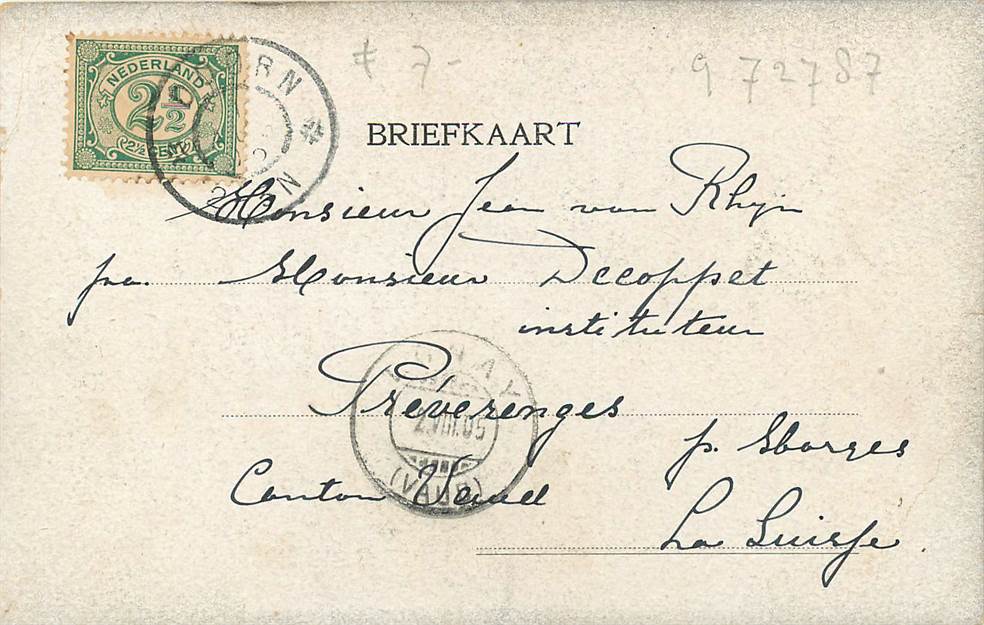 # 7-
972787
NEDERLAND
2½
2½ CENT
BRIEFKAART
Monsieur Jean van Rhijn
pra. Monsieur Decoppet
instituteur
Préverenges
p. Morges
Canton Vaud
La Suisse.
2.VIII.05
(VAUD)